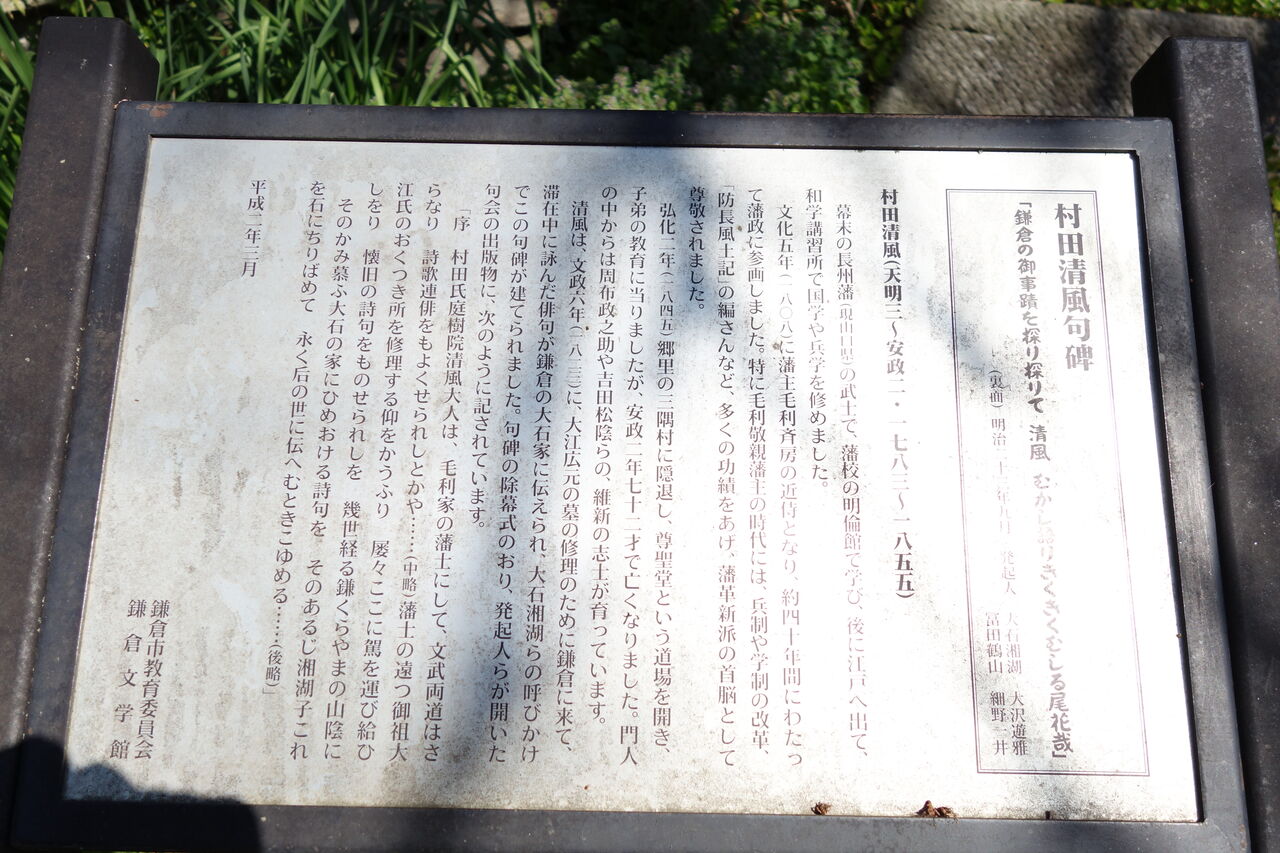 村田清風句碑
「鎌倉の御事蹟を探り探りて 清風 むかし語りきくきくむしる尾花哉」
(裏面) 明治二十三年九月 発起人 大石湘湖 大沢遊雅
冨田鶴山 細野一井
村田清風(天明三〜安政二・一七八三〜一八五五)
幕末の長州藩(現山口県)の武士で、藩校の明倫館で学び、後に江戸へ出て、
和学講習所で国学や兵学を修めました。
文化五年(一八〇八)に藩主毛利斉房の近侍となり、約四十年間にわたっ
て藩政に参画しました。特に毛利敬親藩主の時代には、兵制や学制の改革、
「防長風土記」の編さんなど、多くの功績をあげ、藩革新派の首脳として
尊敬されました。
弘化二年(一八四五)郷里の三隅村に隠退し、尊聖堂という道場を開き、
子弟の教育に当りましたが、安政二年七十二才で亡くなりました。門人
の中からは周布政之助や吉田松陰らの、維新の志士が育っています。
清風は、文政六年(一八二三)に、大江広元の墓の修理のために鎌倉に来て、
滞在中に詠んだ俳句が鎌倉の大石家に伝えられ、大石湘湖らの呼びかけ
でこの句碑が建てられました。句碑の除幕式のおり、発起人らが開いた
句会の出版物に、次のように記されています。
「序 村田氏庭樹院清風大人は、毛利家の藩士にして、文武両道はさ
らなり 詩歌連俳をもよくせられしとかや……(中略)藩士の遠つ御祖大
江氏のおくつき所を修理する仰をかうふり 屡々ここに駕を運び給ひ
しをり 懐旧の詩句をものせられしを 幾世経る鎌くらやまの山陰に
そのかみ慕ふ大石の家にひめおける詩句を そのあるじ湘湖子これ
を石にちりばめて 永く后の世に伝へむときこゆめる……(後略)」
平成二年三月
鎌倉市教育委員会
鎌倉文学館